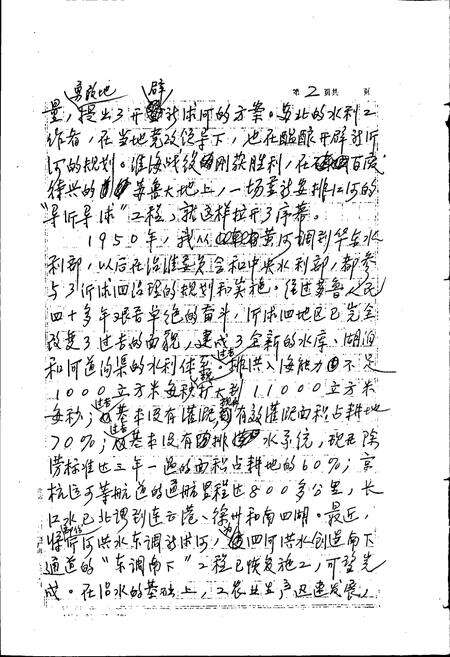 勇敢地 辟 第2页共 页
量，提出了开新沭河的方案。苏北的水利工
作者，在当地党政领导下，也在酝酿开辟新沂
河的规划。淮海战役刚获胜利，在百废
待兴的苏鲁大地上，一场重新安排江河的
“导沂导沭”工程，就这样拉开了序幕。
1950年，我从黄河调到华东水
利部，以后在治淮委员会和中央水利部，都参
与了沂沭泗治理的规划和实施。经过苏鲁人民
四十多年艰苦卓绝的奋斗，沂沭泗地区已完全
改变了过去的面貌，建成了全新的水库、湖泊
和河道沟渠的水利体系。过去排洪入海能力不足
1000立方米每秒，现在扩大到11000立方米
每秒；过去基本没有灌溉，现在有效灌溉面积占耕地
70%；过去基本没有排水系统，现在除
涝标准达三年一遇的面积占耕地的60%；京
杭运河等航道的通航里程达800多公里，长
江水已北调到连云港、徐州和南四湖。最近，
沂河洪水东调新沭河，为四河洪水创造南下
通道的“东调南下”工程已恢复施工，可望完
成。在治水的基础上，工农业生产迅速发展，